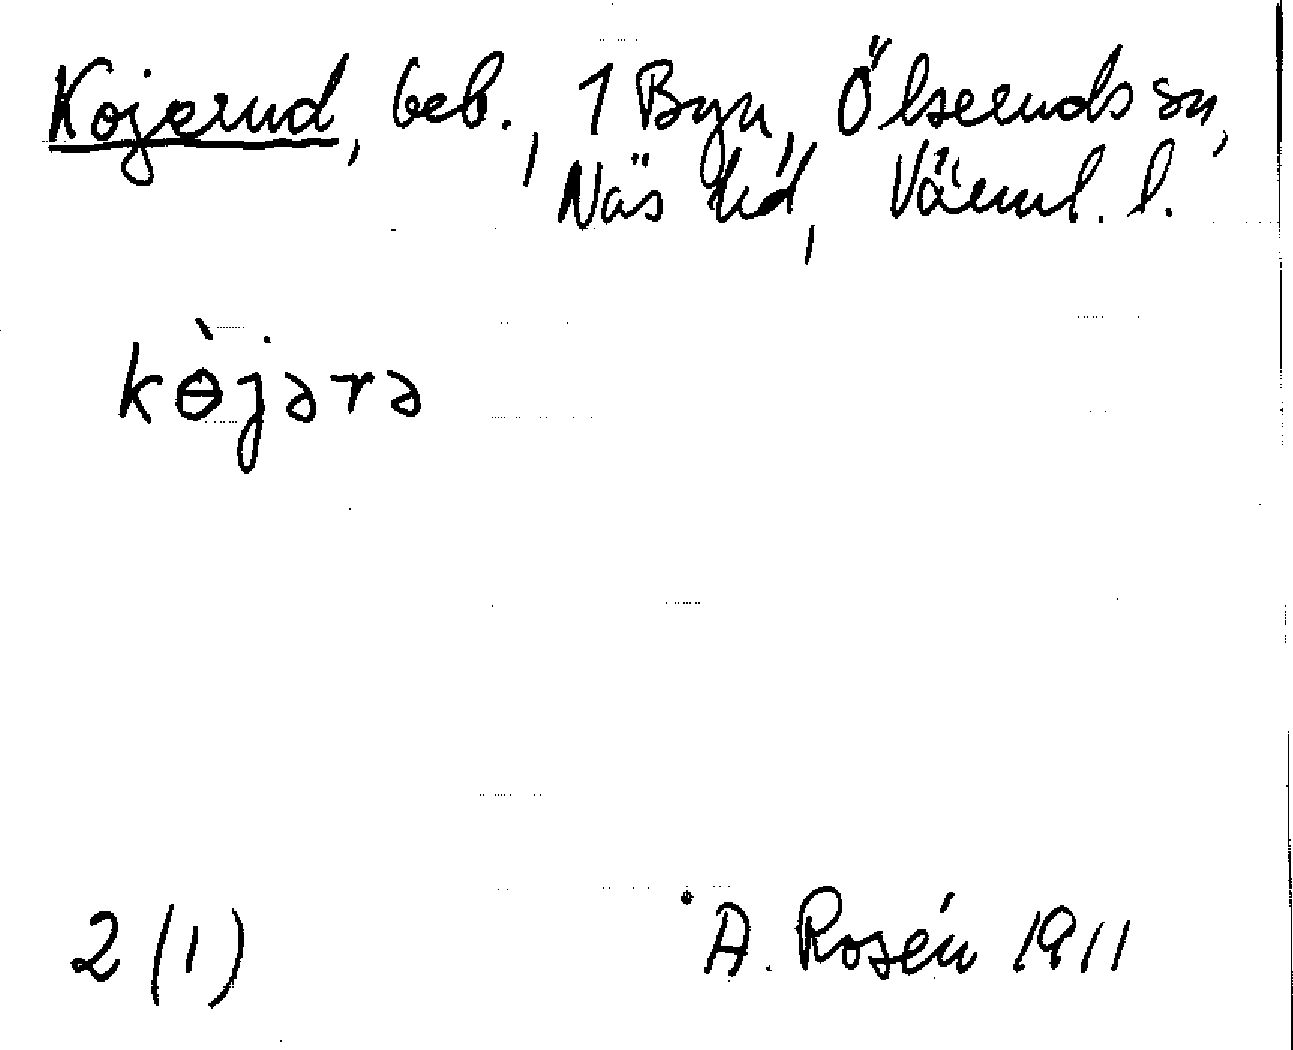 Kojerud, beb., 1 Byn, Ölseruds sn,
Näs hd, Värml. l.
kɵ̀jərə
2 (1)
A. Rosén 1911